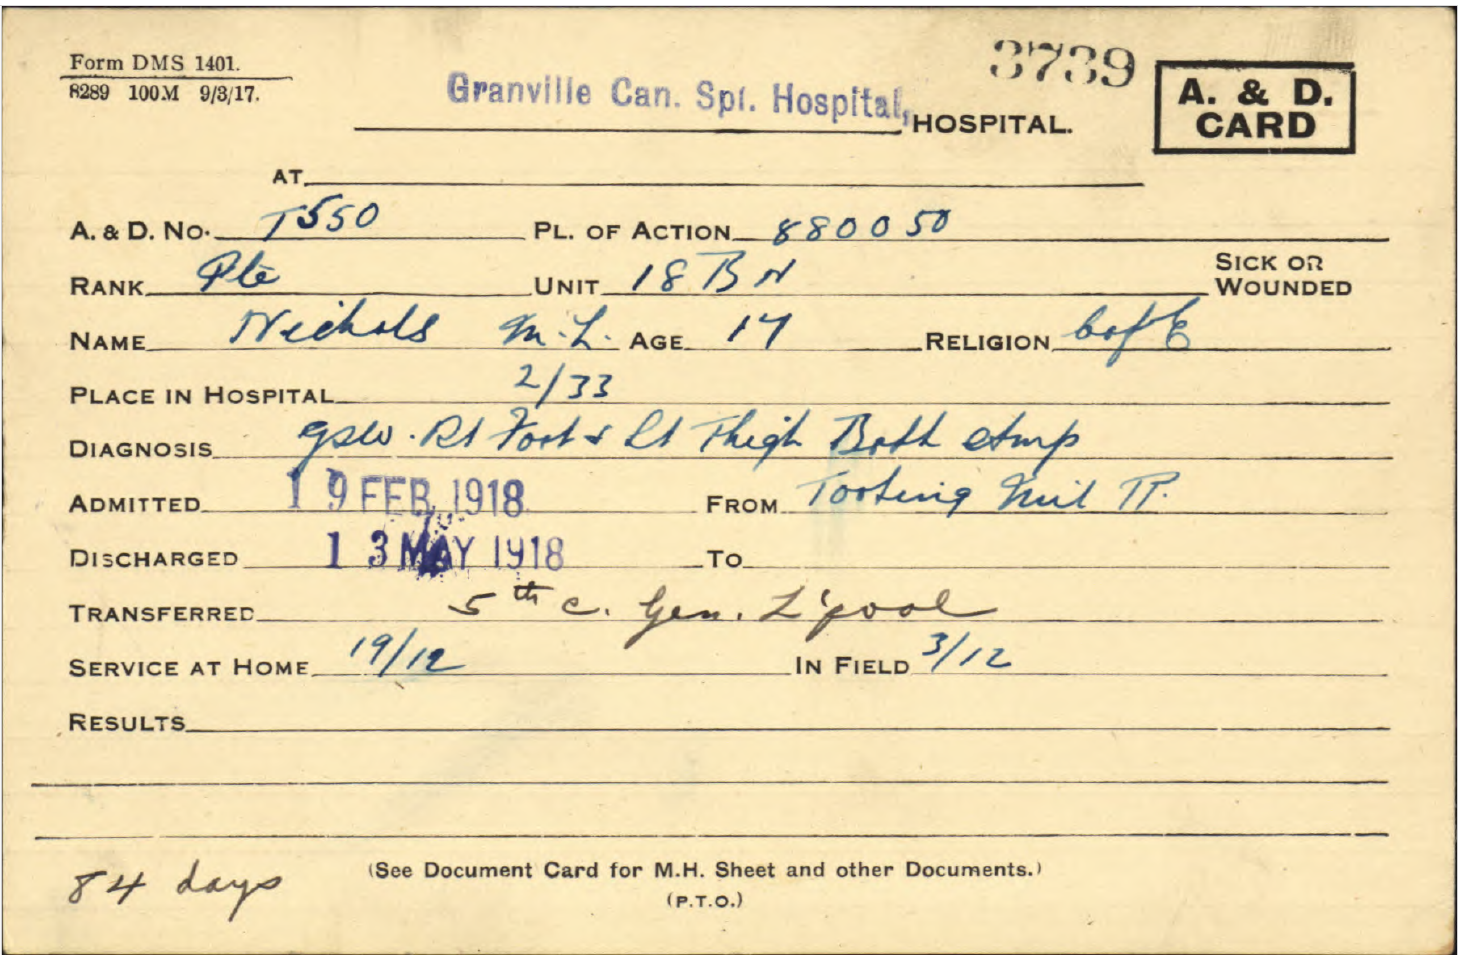 Form DMS 1401.
8289 100M 9/3/17.
3739
A. & D. CARD
Granville Can. Spl. Hospital, HOSPITAL.
AT
A. & D. No. T550 PL. OF ACTION 880050
RANK Pte UNIT 18 BN SICK OR WOUNDED
NAME Nichols M.L. AGE 17 RELIGION C of E
PLACE IN HOSPITAL 2/33
DIAGNOSIS GSW. Rt Foot & Lt Thigh Both Amp
ADMITTED 19 FEB 1918 FROM Tooting Mil
DISCHARGED 13 MAY 1918 TO
TRANSFERRED 5th C. Gen. L'pool
SERVICE AT HOME 19/12 IN FIELD 3/12
RESULTS
84 days
(See Document Card for M.H. Sheet and other Documents.)
(P.T.O.)